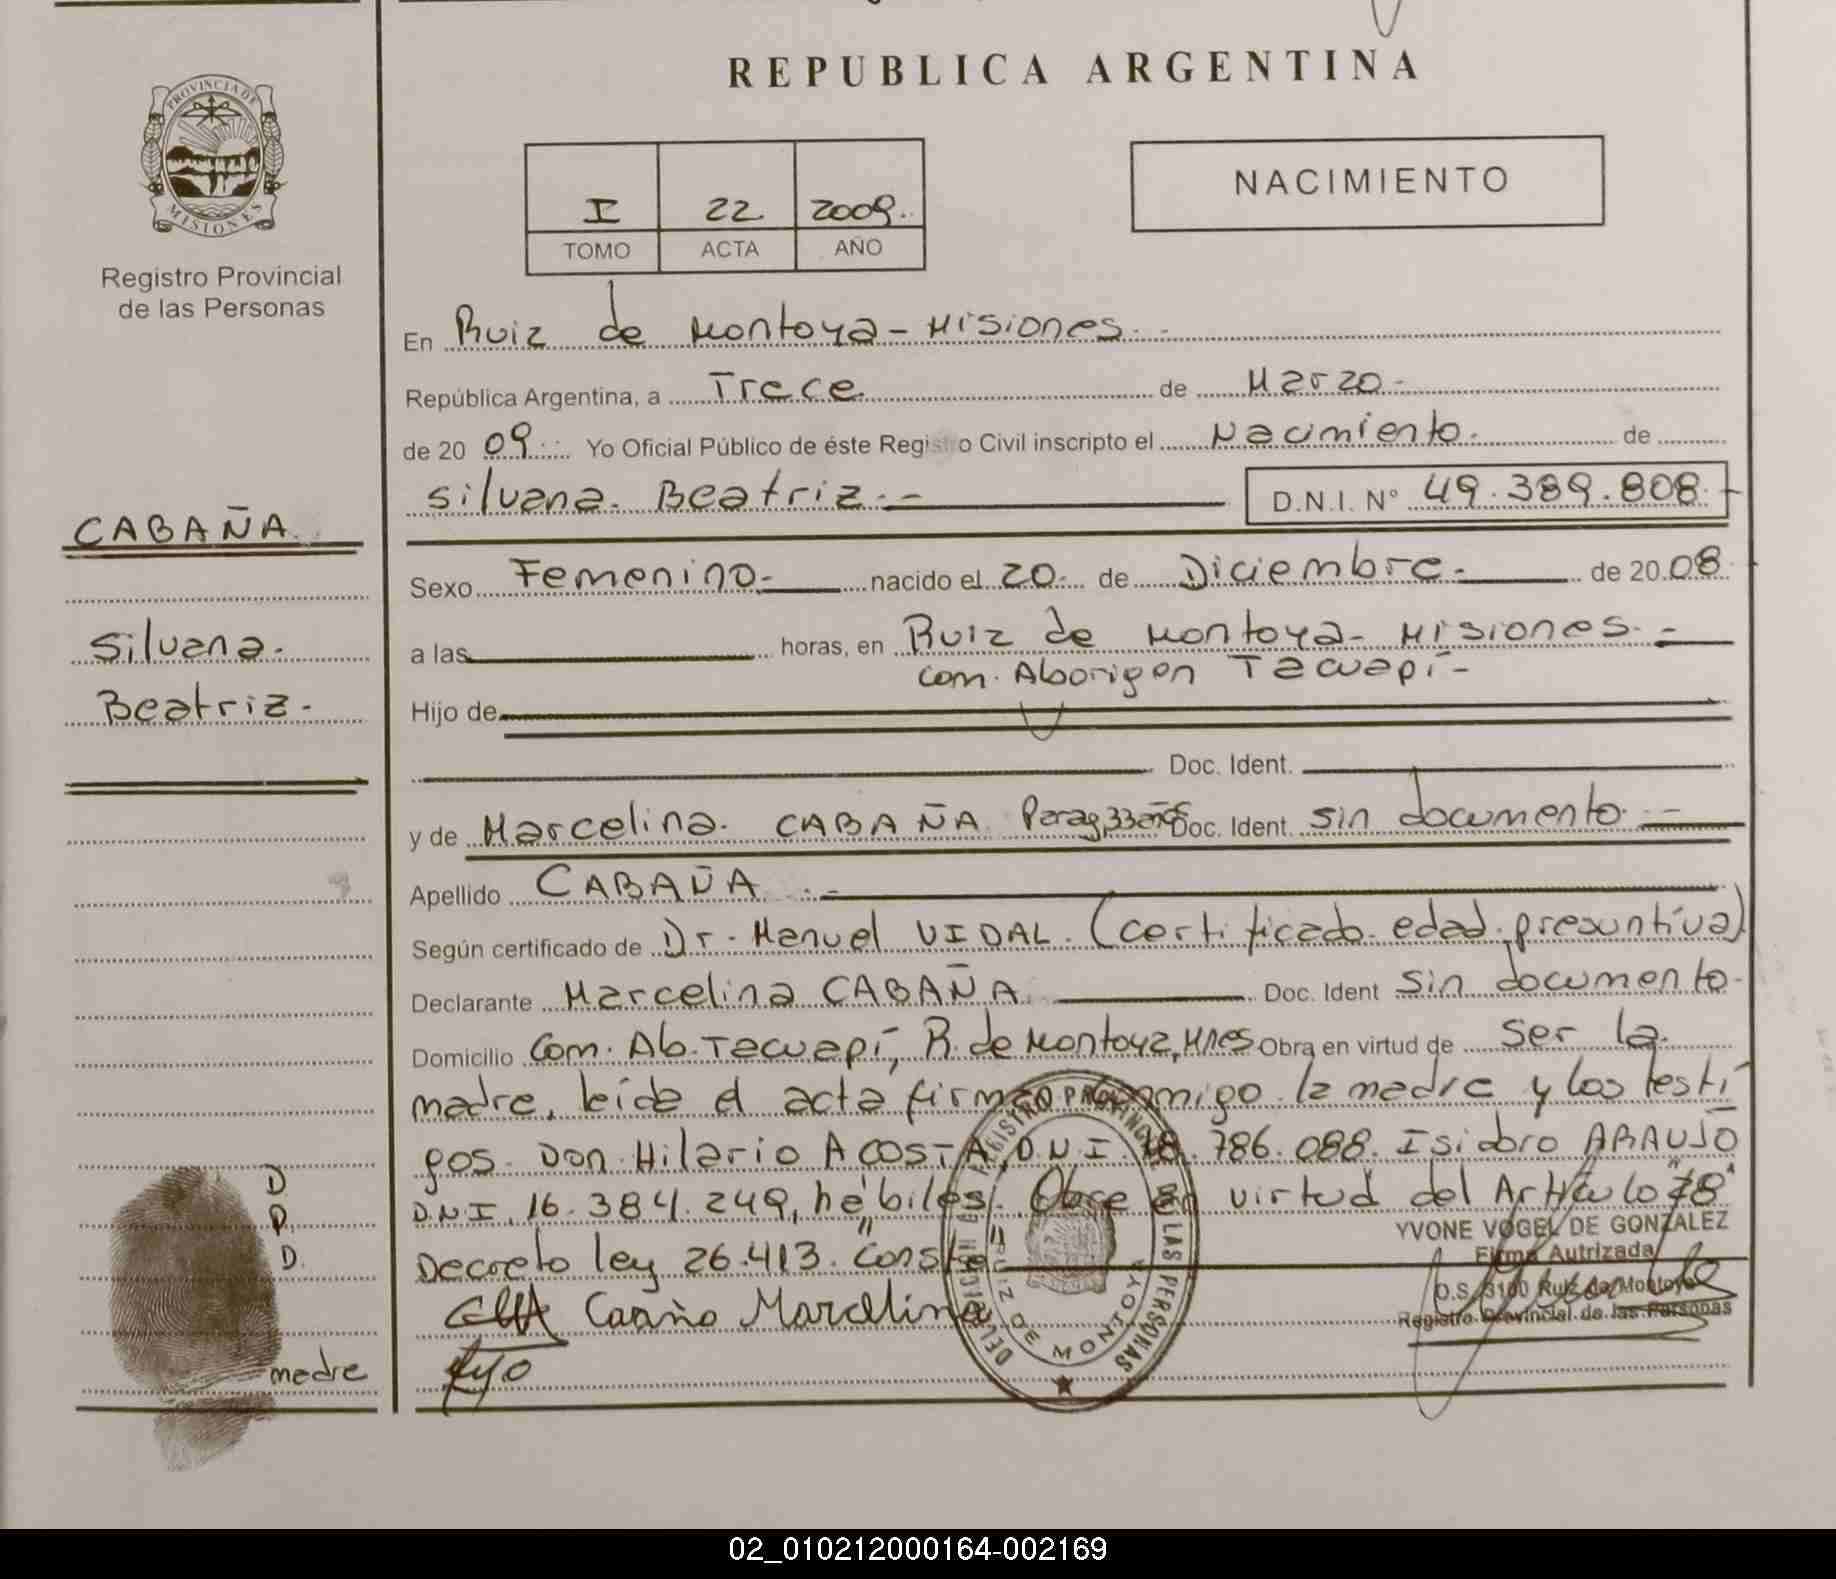 REPUBLICA ARGENTINA
PROVINCIA DE
MISIONES
Registro Provincial
de las Personas
I 22 2009.
TOMO ACTA AÑO
NACIMIENTO
En Ruiz de Montoya - Misiones.-
República Argentina, a Trece de Marzo-
de 2009 Yo Oficial Público de éste Registro Civil inscripto el Nacimiento. de
Silvana Beatriz.- D.N.I. N° 49.389.808.-
CABAÑA
Silvana.
Beatriz-
Sexo Femenino- nacido el 20 de Diciembre- de 2008
a las horas, en Ruiz de Montoya - Misiones.-
com. Aborigen Tacuapí-
Hijo de
Doc. Ident.
y de Marcelina CABAÑA Parag, 33 años Doc. Ident. sin documento.-
Apellido CABAÑA.-
Según certificado de Dr. Manuel VIDAL. (certificado edad presuntiva)
Declarante Marcelina CABAÑA Doc. Ident sin documento-
Domicilio Com. Ab. Tacuapí, R. de Montoya, Mnes Obra en virtud de ser la
madre, leída el acta firma conmigo la madre y los testi
gos Don Hilario ACOSTA, D.N.I. 18.786.088. Isidoro ARAUJO
D.N.I. 16.384.249, hábiles. Obra en virtud del Artículo 78
Decreto ley 26.413. "Conste"
D
P.
D.
madre
Marcelina
YVONE VOGEL DE GONZALEZ
Firma Autrizada
O.S. 3100 Ruiz de Montoya
Registro Provincial de las Personas
REGISTRO PROVINCIAL DE LAS PERSONAS
RUIZ DE MONTOYA
02_010212000164-002169